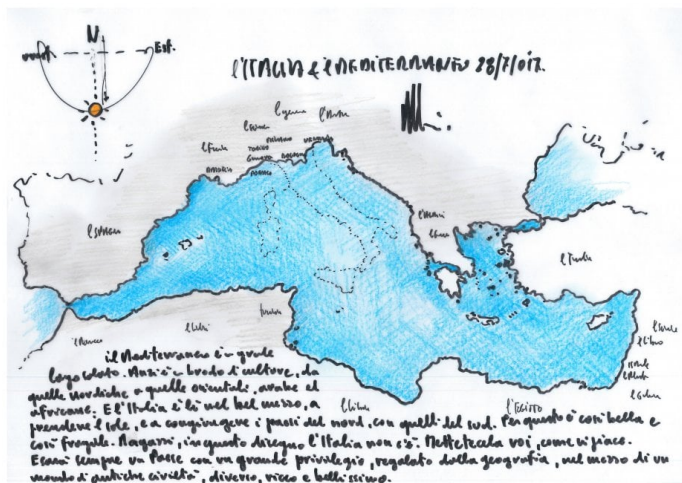 N
ovest. Est.
l'ITALIA e il MEDITERRANEO 28/7/017.
l'Austria
la Francia
MILANO VENEZIA
TORINO
GENOVA BOLOGNA
la SPAGNA
la Grecia
la Turchia
il Marocco
la Tunisia
la Libia
l'EGITTO
il Libano
il Mediterraneo è un grande
lago salato. Anzi è un brodo di culture, da
quelle nordiche a quelle orientali, arabe ed
africane. E l'Italia è lì nel bel mezzo, a
prendere il sole, e a congiungere i paesi del nord, con quelli del sud. Per questo è così bella e
così fragile. Ragazzi, in questo disegno l'Italia non c'è. Mettetecela voi, come vi piace.
E sarà sempre un Paese con un grande privilegio, regalato dalla geografia, nel mezzo di un
mondo di antiche civiltà, diverso, ricco e bellissimo.